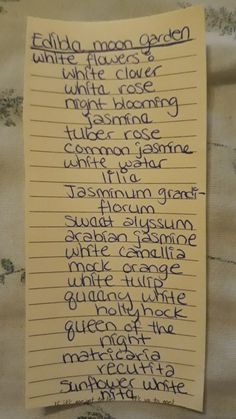 Edibla moon garden
white flowers:
white clover
white rose
night blooming
jasmine
tuber rose
common jasmine
white watar
lilia
Jasminum grandi-
florum
sweet alyssum
arabian jasmine
white camallia
mock orange
white tulip
queany white
hollyhock
queen of the
night
matricaria
recutita
sunflower white
nita